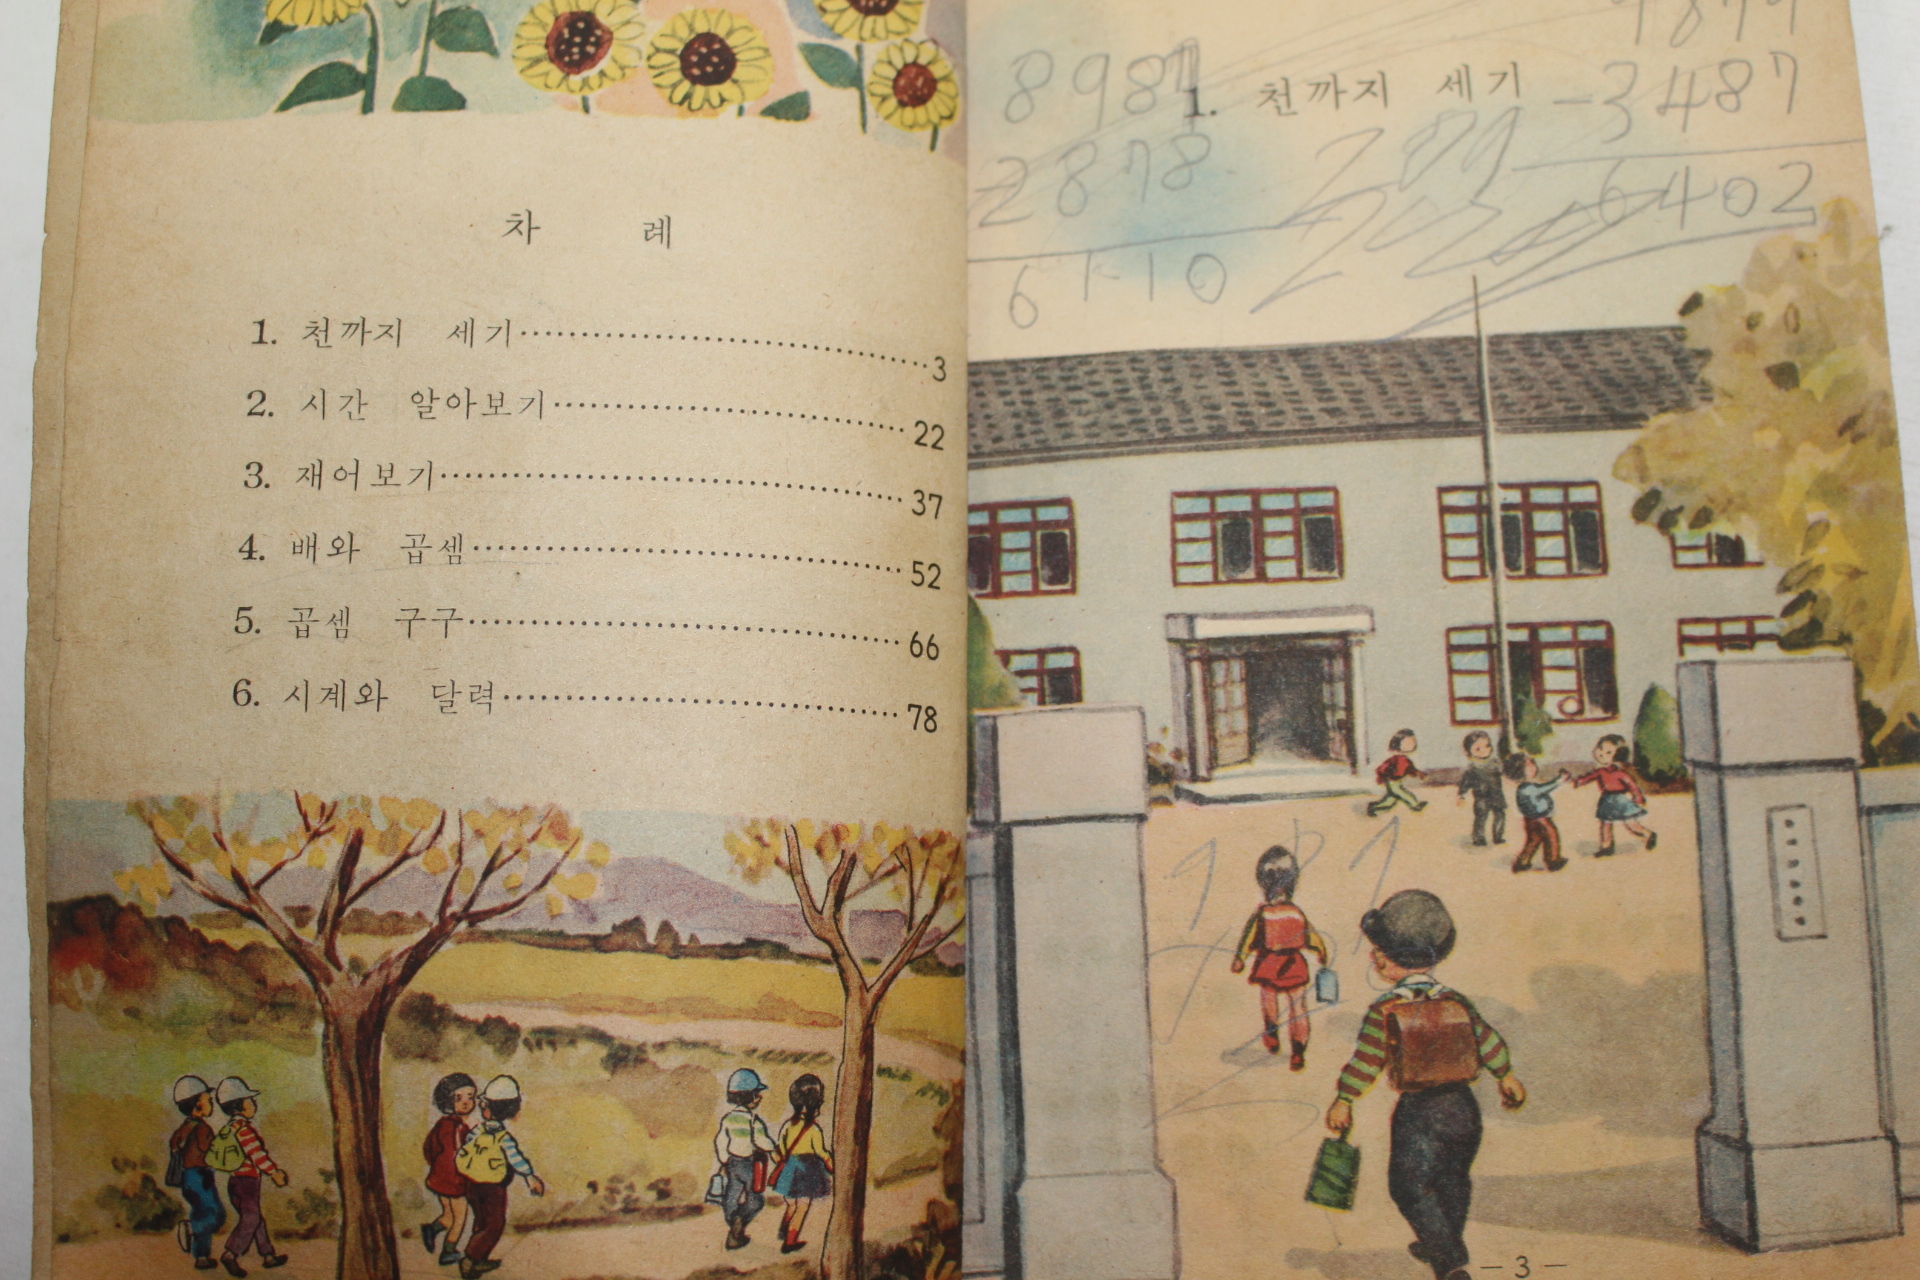 차 례
1. 천까지 세기 3
2. 시간 알아보기 22
3. 재어보기 37
4. 배와 곱셈 52
5. 곱셈 구구 66
6. 시계와 달력 78
1. 천까지 세기
8987
2878
6110
-3487
6402
- 3 -